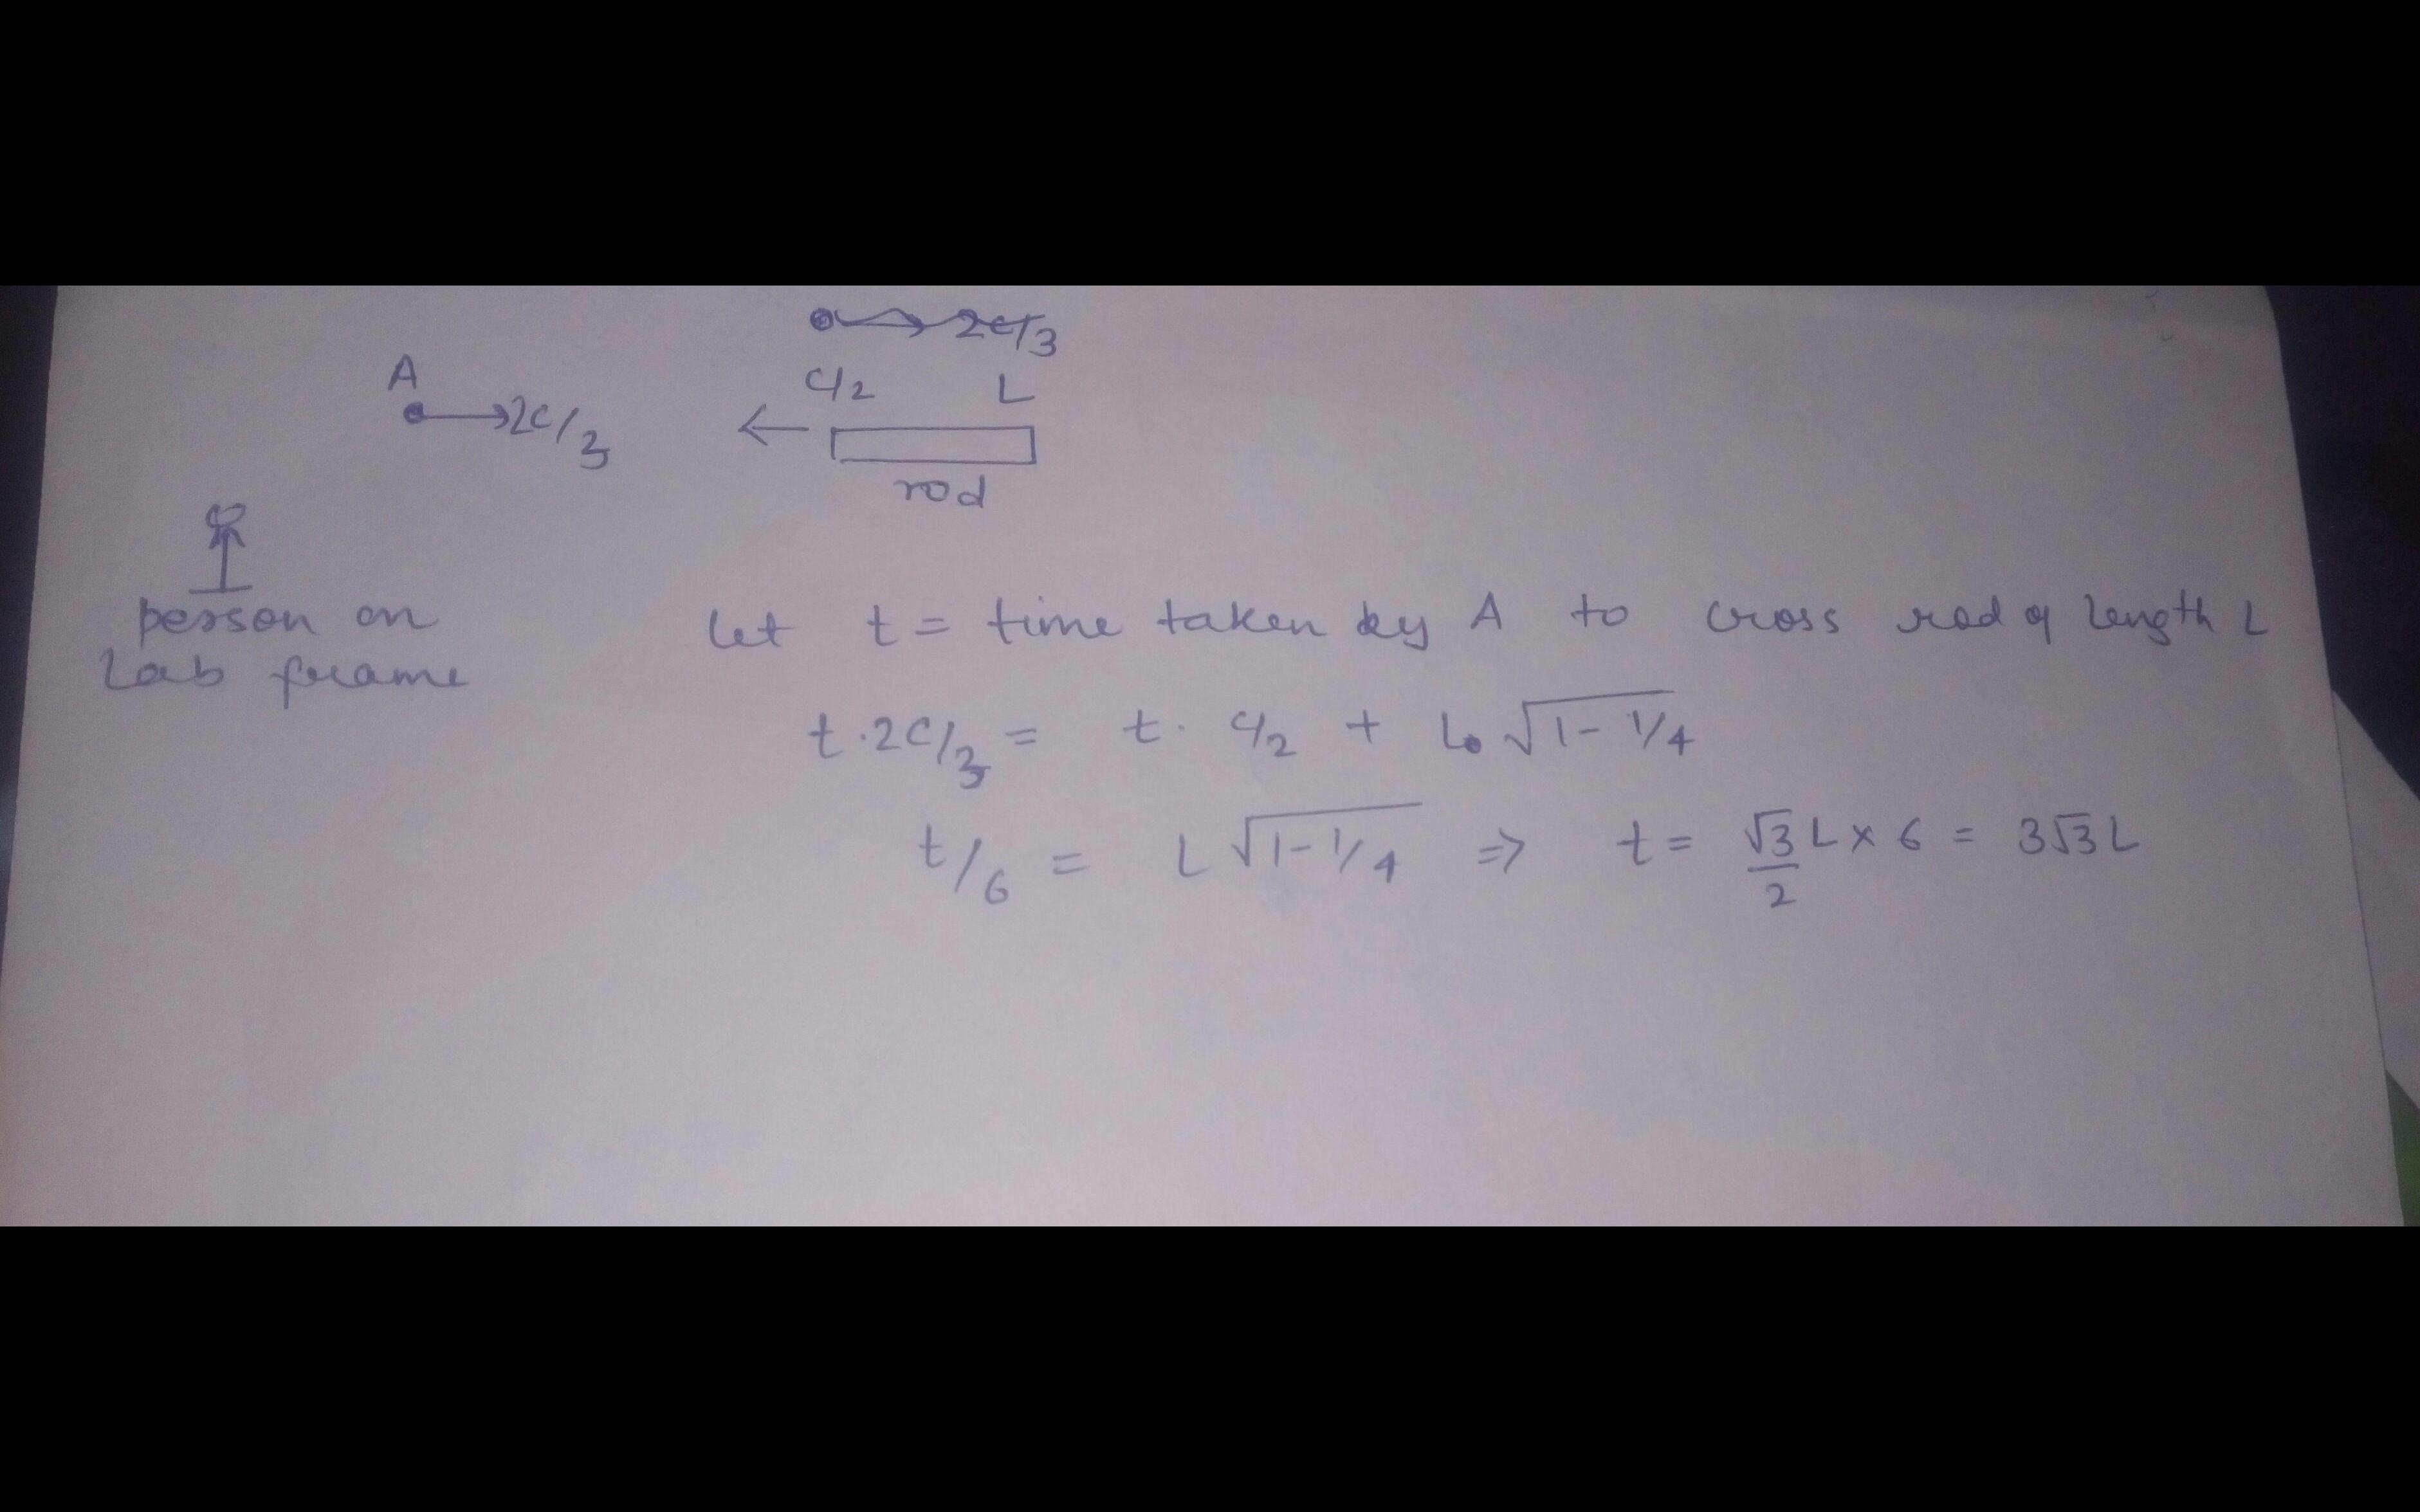 2c/3
A
c/2 L
2c/3
rod
person on
Lab frame
Let t = time taken by A to cross rod of length L
t·2c/3 = t· c/2 + L₀ √1-1/4
t/6 = L √1-1/4 ⇒ t = √3/2 L × 6 = 3√3 L